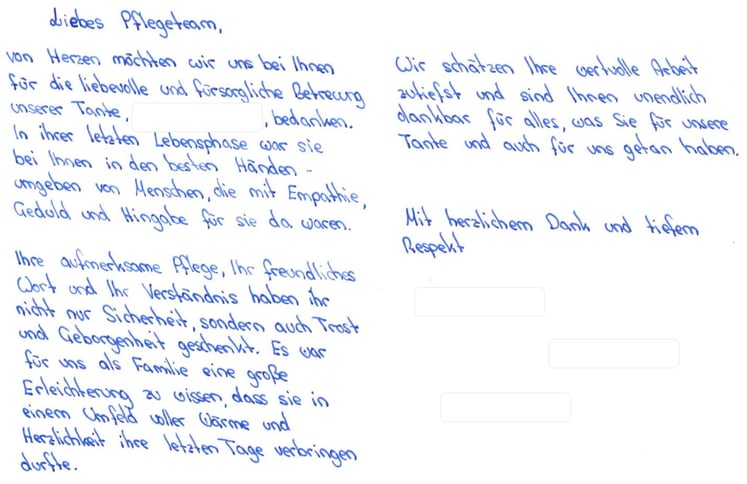 Liebes Pflegeteam,
von Herzen möchten wir uns bei Ihnen
für die liebevolle und fürsorgliche Betreuung
unserer Tante, , bedanken.
In ihrer letzten Lebensphase war sie
bei Ihnen in den besten Händen -
umgeben von Menschen, die mit Empathie,
Geduld und Hingabe für sie da waren.
Ihre aufmerksame Pflege, Ihr freundliches
Wort und Ihr Verständnis haben ihr
nicht nur Sicherheit, sondern auch Trost
und Geborgenheit geschenkt. Es war
für uns als Familie eine große
Erleichterung zu wissen, dass sie in
einem Umfeld voller Wärme und
Herzlichkeit ihre letzten Tage verbringen
durfte.
Wir schätzen Ihre wertvolle Arbeit
zutiefst und sind Ihnen unendlich
dankbar für alles, was Sie für unsere
Tante und auch für uns getan haben.
Mit herzlichem Dank und tiefem
Respekt